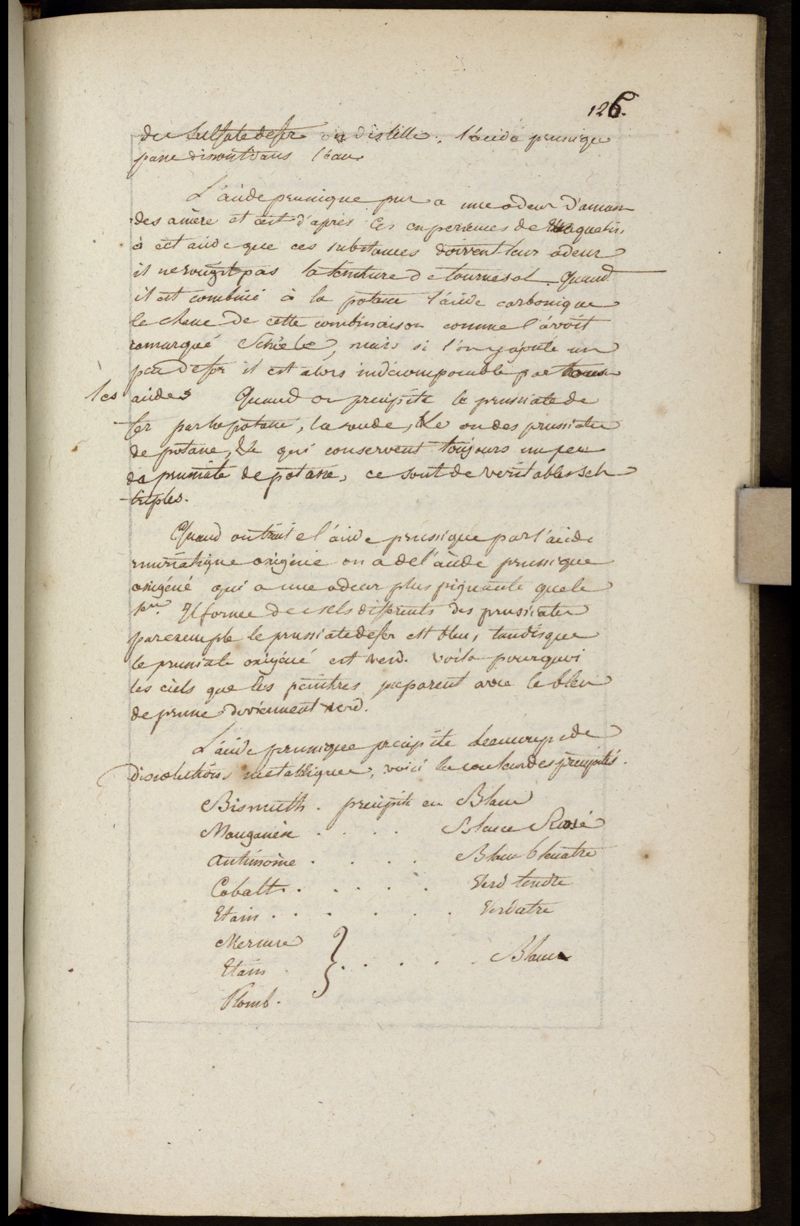 126.
du sulfate de fer on distille; l'acide prussique
passe dissout dans l'eau
L'acide prussique pur a une odeur d'aman
des amère et c'est d'après les experiences de Vauquelin
à cet acide que ces substances doivent leur odeur
il ne rougit pas la teinture de tournesol. Quand
il est combiné à la potasse l'acide carbonique
le chasse de cette combinaison comme l'avoit
remarqué Schéele, mais si l'on y ajoute un
peu de fer il est alors indécomposable par tous
les acides Quand on precipite le prussiate de
fer par la potasse, la soude, &c on a des prussiates
de potasse, &c qui conservent toujours un peu
de prussiate de potasse, ce sont de veritables sels
triples.
Quand on traite l'acide prussique par l'acide
muriatique oxigéné on a de l'acide prussique
oxigéné qui a une odeur plus piquante que le
1er. Il forme des sels différents des prussiates
par exemple le prussiate de fer est bleu, tandis que
le prussiate oxigéné est verd. voila pourquoi
les ciels que les peintres preparent avec le bleu
de prusse deviennent verd.
L'acide prussique precipite beaucoup de
dissolutions metalliques; voici la couleur des précipités.
Bismuth. precipité en Blanc
Manganèse . . . . Blanc Rosé
Antimoine . . . . Blanc bleuatre
Cobalt . . . . . Verd tendre
Etain . . . . . . Verdatre
Mercure
Etain } . . . . . Blanc
Plomb.